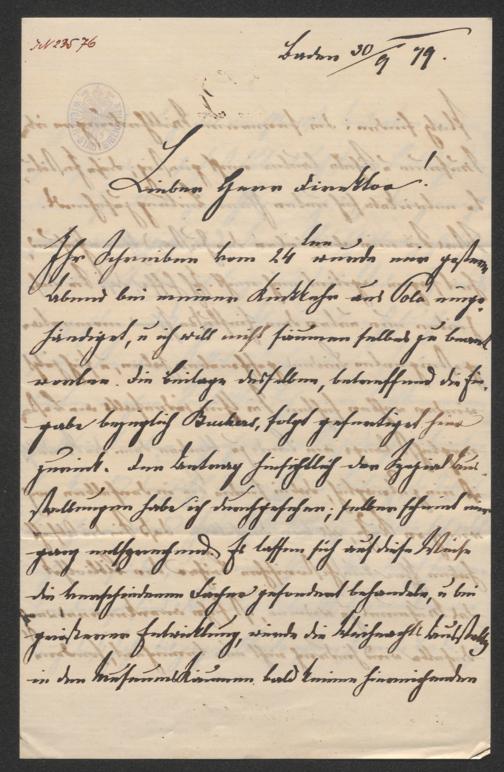 IN 23576
Baden 30/9 79.
Lieber Herr Direktor!
Ihr Schreiben vom 24ten wurde mir gestern
Abend bei meiner Rückkehr aus Pola einge-
händiget, u ich will nicht säumen selbes zu beant
worten. Die Beilage desselben, betreffend die Ein-
gabe bezüglich Buchers, folgt gefertiget hier
zurück. Den Antrag hinsichtlich der Spezial Aus-
stellungen habe ich durchgesehen; selber scheint mir
ganz entsprechend. Es lassen sich auf diese Weise
die verschiedenen Fächer gesondert behandeln, u bei
grösserer Entwicklung, würde die Weihnachts Ausstellg
in den Museums Räumen bald keine hinreichenden